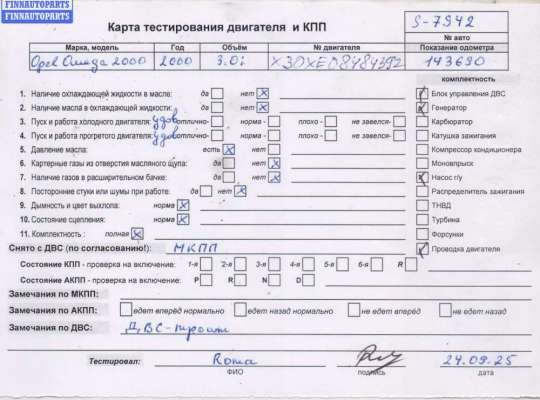 FINNAUTOPARTS
FINNAUTOPARTS
Карта тестирования двигателя и КПП
S-7942
№ авто
Марка, модель Год Объём № двигателя Показание одометра
Opel Omega 2000 2000 3.0i X30XE08484392 143690
комплектность
1. Наличие охлаждающей жидкости в масле: да нет
2. Наличие масла в охлаждающей жидкости: да нет
3. Пуск и работа холодного двигателя: удов отлично- норма- плохо- не завелся-
4. Пуск и работа прогретого двигателя: удов отлично- норма- плохо - не завелся-
5. Давление масла: есть нет
6. Картерные газы из отверстия масляного щупа: да нет
7. Наличие газов в расширительном бачке: да нет
8. Посторонние стуки или шумы при работе: да нет
9. Дымность и цвет выхлопа: норма
10. Состояние сцепления: норма
11. Комплектность : полная
Блок управления ДВС
Генератор
Карбюратор
Катушка зажигания
Компрессор кондиционера
Моновпрыск
Насос г/у
Распределитель зажигания
ТНВД
Турбина
Форсунки
Проводка двигателя
Снято с ДВС (по согласованию!): МКПП
Состояние КПП - проверка на включение: 1-я 2-я 3-я 4-я 5-я 6-я R
Состояние АКПП - проверка на включение: P R N D
Замечания по МКПП:
Замечания по АКПП: едет вперёд нормально едет назад нормально не едет вперёд не едет назад
Замечания по ДВС: ДВС-троит
Тестировал: Roma 24.09.25
ФИО подпись дата